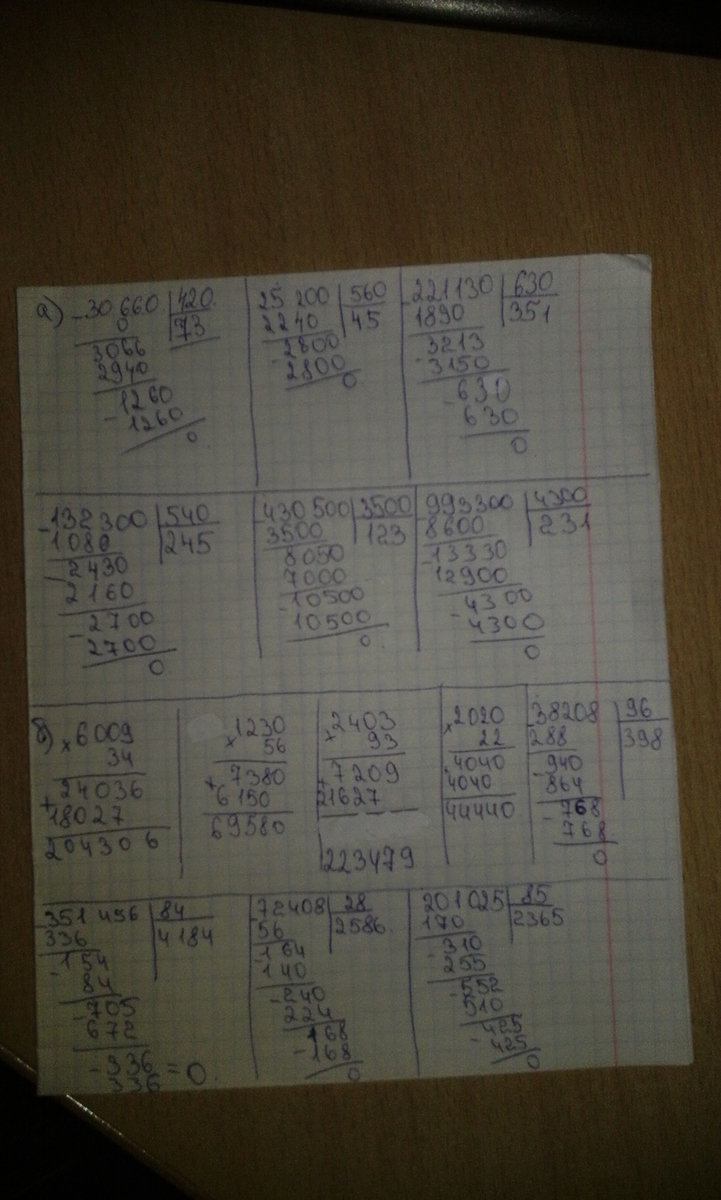 а) -30660 | 420
0 | 73
3066
2940
-1260
1260
0
25200 | 560
2240 | 45
-2800
2800
0
-221130 | 630
1890 | 351
-3213
3150
-630
630
0
-132300 | 540
1080 | 245
-2430
2160
-2700
2700
0
-430500 | 3500
3500 | 123
8050
7000
-10500
10500
0
-993300 | 4300
8600 | 231
-13330
12900
-4300
4300
0
б) ×6009
34
24036
+18027
204306
×1230
56
+7380
6150
69580
×2403
93
+7209
21627
223479
×2020
22
4040
4040
44440
-38208 | 96
288 | 398
-940
864
-768
768
0
-351456 | 84
336 | 4184
-154
84
-705
672
-336
336 = 0
-72408 | 28
56 | 2586
-164
140
-240
224
168
-168
0
201025 | 85
170 | 2365
-310
255
-552
510
-425
425
0